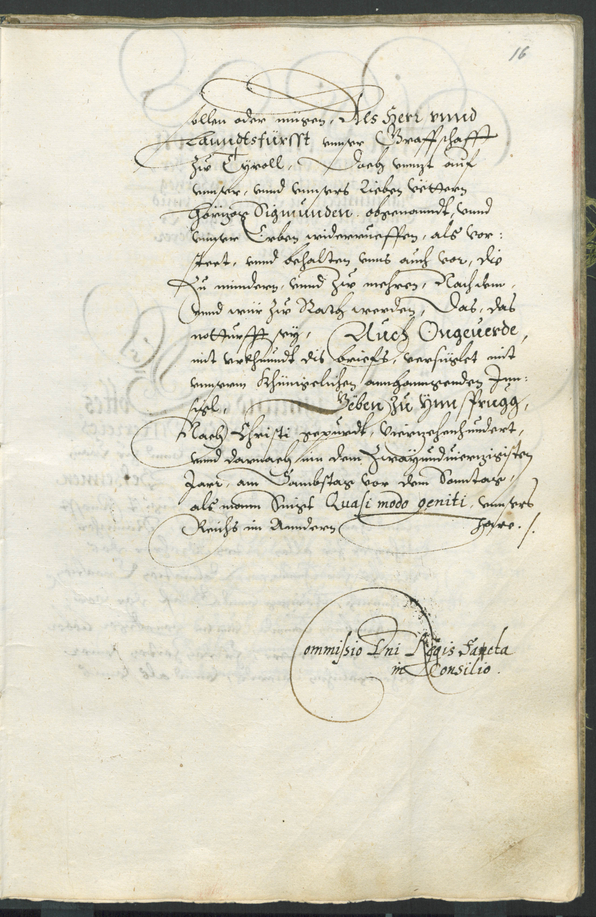 16
ollen oder mügen, Als Herr vnnd
Lanndtsfürsst vnnser Graffschafft
zu Tyroll, Doch vnnzt auf
vnnser, vnnd vnnsers Lieben Vettern
Hörzog Sigmunden, obgenanndt, vnnd
vnnser Erben widerrueffen, als vor:
steet, vnnd behalten vnns auch vor, die
zu mindern, vnnd zu mehren, Nachdem,
vnnd wür zu Rath werden, Das, das
notturfft sey, Auch Ongeuerde,
mit vrkhundt dis briefs, versiglet mit
vnnserm Khünigelichen annhanngenden Inn:
sigl, Geben zu Ynnsprugg,
Nach Christi gepurdt, vierzehenhundert,
vnnd darnach im dem Zwayundvierzigisten
Jarr, am Sambstag vor dem Sonntag,
als mann Singt Quasi modo geniti, vnnsers
Reichs im Anndern Jare.
Commissio Dni Regis
in Consilio.